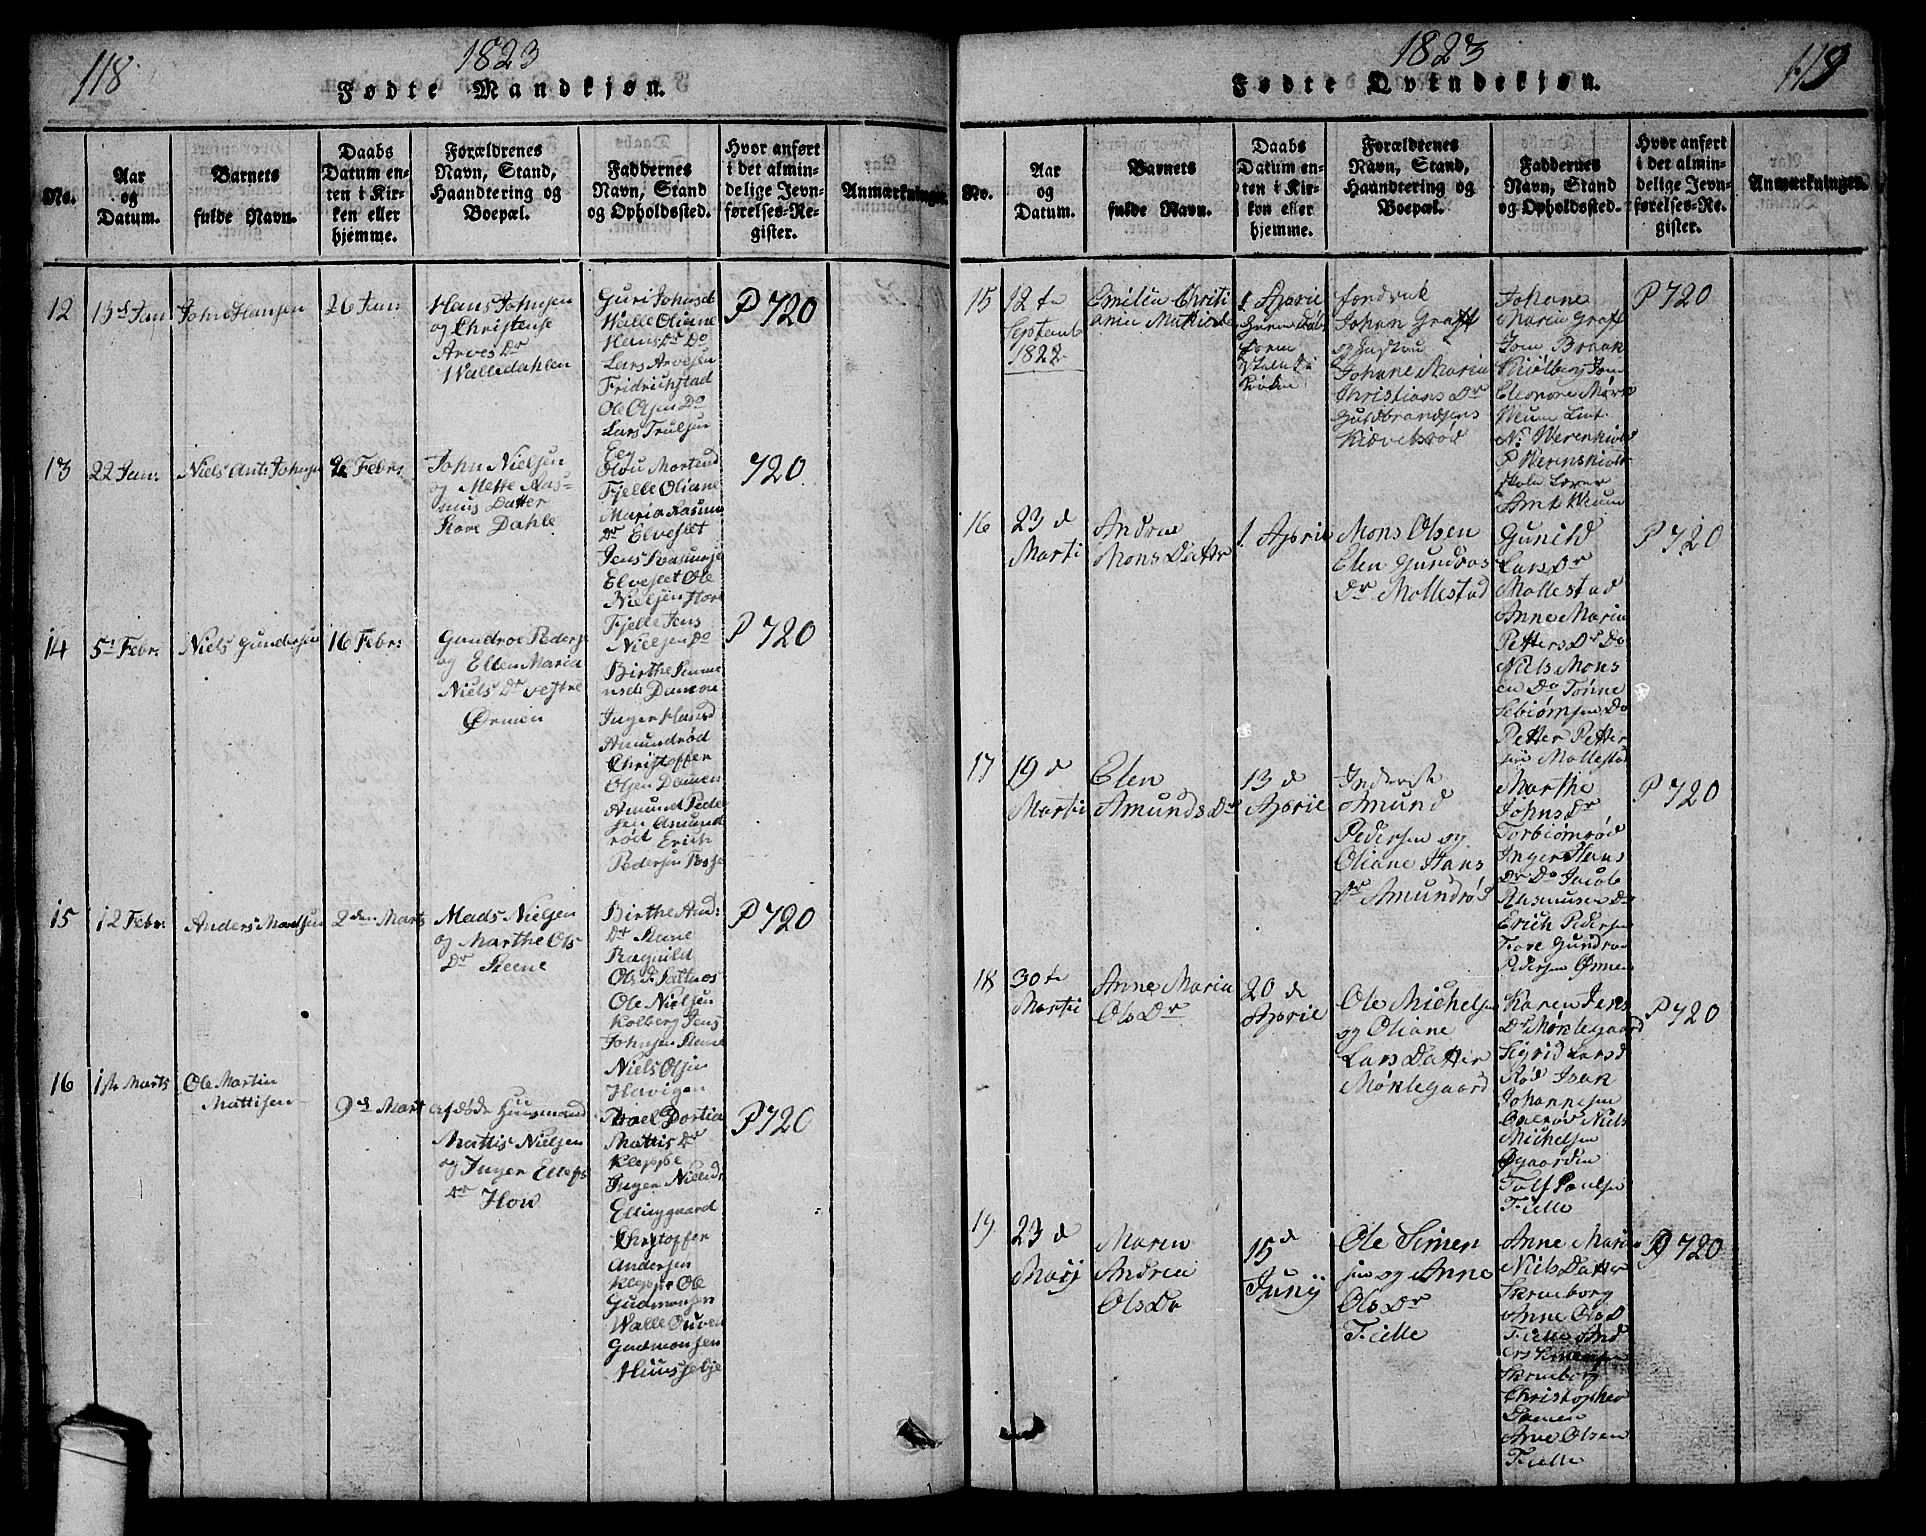 118
1823
Fødte Mandkjøn.
No.
Aar
og
Datum.
Barnets
fulde Navn.
Daabs
Datum en-
ten i Kir-
ken eller
hjemme.
Forældrenes
Navn, Stand,
Haandtering og
Boepæl.
Faddernes
Navn, Stand
og Opholdssted.
Hvor anført
i det almin-
delige Jevn-
førelses-Re-
gister.
Anmærkninger.
12
13d Jan
John Hansen
26 Jan:
Hans Johnsen
og Christense
Arves Dr
Walledahlen
Guri Johnsd
Walle Oliane
Hans Dr Do
Lars Arvesen
Fridrichstad
Ole Olsen Do
Lars Trulsen
Eeg
P 720
13
22 Jan:
Niels Ants Johnsen
2 Febr:
John Nielsen
og Mette Ras-
mus Datter
Store Dahle
Olou Mortensd
Fjelle Oliane
Maria Rasmus
Dr Elveslet
Jens Rasmusse
Elveslet Ole
Nielsen Store
Fjelle Jens
Nielsen Do
720
14
5t Febr:
Niels Gundersen
16 Febr:
Gundroe Peders
og Ellen Maria
Niels Dr vestre
Ørmen
Birthe
Damone
Inger Hansd
Amundrød
Christoffer
Olsen Damen
Amund Peder
sen Amund
rød Erich
Pedersen Tosse
P 720
15
12 Febr:
Anders Madsen
2den Marts
Mads Nielsen
og Marthe Ols
Dr Steene
Birthe And:
Dr Steene
Ragnild
Ols d.
Ole Nielsen
Kolberg Jens
Johnsen Steene
Niels Olsen
Havigen
P 720
16
1ste Marts
Ole Martin
Mattisen
9de Mart
afdøde Huusmand
Mattis Nielsen
og Inger Ellefs
Dr Hou
Dortia
Mattis Dr
Kleppe
Inger
Ellinggaard
Christoffer
Andersen
Kleppe Ole
Gudmonsen
Walle
Gudmonsen
Huusseløe
P 720
1823
119
Fødte Qvindekjøn.
No.
Aar
og
Datum.
Barnets
fulde Navn.
Daabs
Datum en-
ten i Kir-
ken eller
hjemme.
Forældrenes
Navn, Stand,
Haandtering og
Boepæl.
Faddernes
Navn, Stand
og Opholdssted.
Hvor anført
i det almin-
delige Jevn-
førelses-Re-
gister.
Anmærkninger.
15
12te
Septemb
1822
Emilia Christi
ania Mathilde
1 Aprie
Johan Graff
og Hustru
Johane Maria
Christians Dr
Guldbrandsens
Kiævelsrød
Johane
Maria Graff
Jom Braak
Kiølberg Jom
Eleonore
Weum Lint.
N. Werenskiold
P Werenskiold
Skole Lærer
Amt Weum
P 720
16
23 d
Marti
Andrea
Mons Datter
1. Aprie
Mons Olsen
Elen Gundros
Dr Mollestad
Gunild
Lars Dr
Mollestad
Anne Maria
Petters Dr Do
Niels Mons
en Do Tønne
Sebiørnsen Do
Petter Petter
sen Mollestad
P 720
17
19 d
Marti
Elen
Amunds Dr
13 d
Aprie
Inderste
Amund
Pedersen og
Oliane Hans
Dr Amundrød
Marthe
Johns Dr
Torbiørnrød
Inger Hans
Dr Do Jacob
Rasmusen Do
Erich Pedersen
Tose Gundro
Pedersen Ørmen
P 720
18
30te
Marti
Anne Maria
Ols Dr
20 d
Aprie
Ole Michelsen
og Oliane
Lars Datter
Mønlegaard
Karen Jens
Dr Mønlegaard
Sigrid Larsd
Rød Isak
Johannesen
Michelsen
Øgaarden
Tolf Poulsen
Fielle
P 720
19
23 d
Maij
Maren
Andrea
Ols Dr
15d
Junij
Ole Simen
sen og Anne
Ols Dr
Fielle
Anne Maria
Niels Datter
Skraaborg
Anne Olsd
Fielle And
ers Simensen
Skraaborg
Christopher
Damen
Arne Olsen
Fielle
P 720